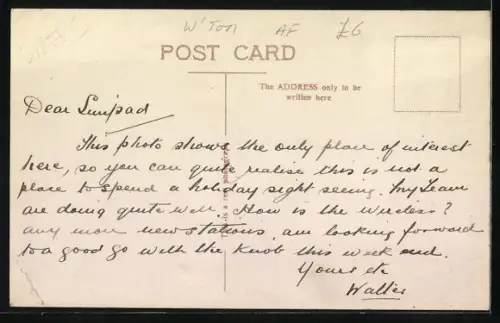 W'Ton AF £6
POST CARD
The ADDRESS only to be
written here.
Dear
This photo shows the only place of interest
here, so you can quite realise this is not a
place to spend a holiday sight seeing. my
are doing quite well. How is the wireless?
any more new stations, am looking forward
to a good go with the knob this week end.
Yours etc
Walter